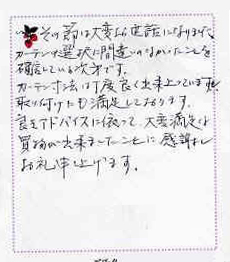 その節は大変お世話になりまして、
カーテンの選択に間違いのなかったことを
確信している次第です。
カーテン寸法は丁度良く出来上っています
取り付けにも満足しております。
良きアドバイスに依って、大変満足な
買物が出来ましたことに感謝し
お礼申し上げます。